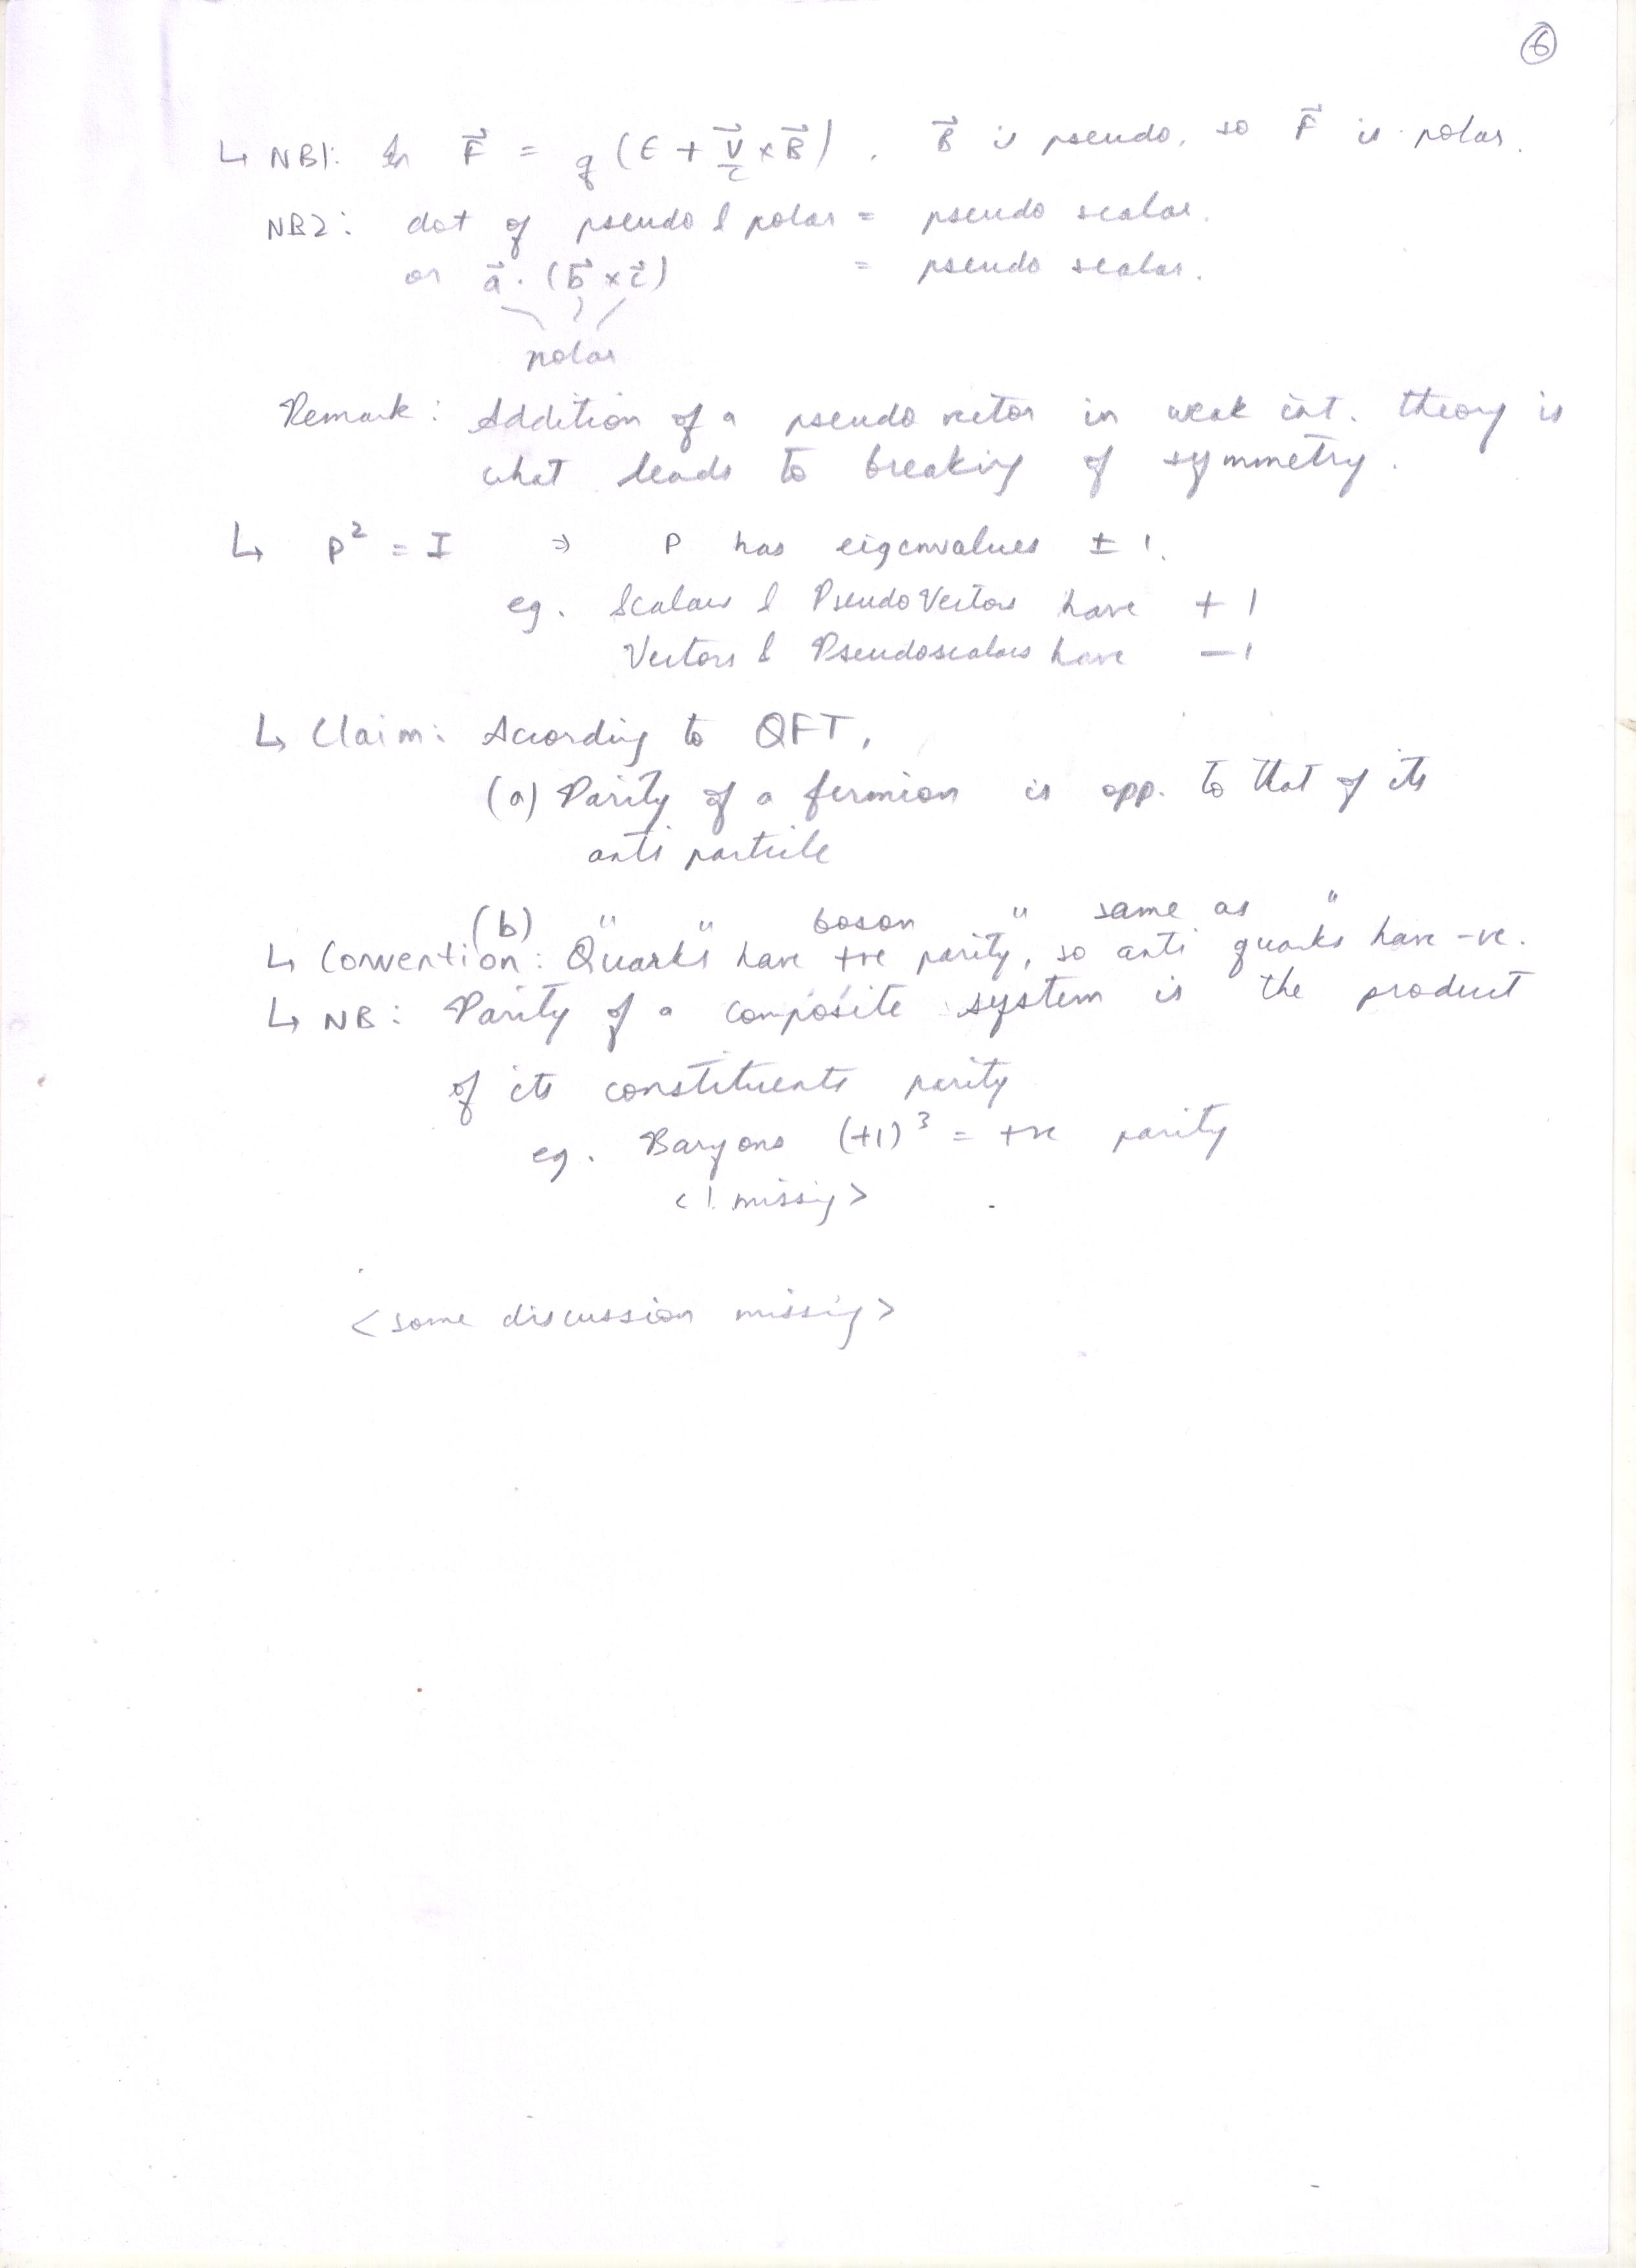 6
↳ NB1: In F⃗ = q (E + v⃗/c × B⃗) , B⃗ is pseudo, so F⃗ is polar.
NB2: dot of pseudo & polar = pseudo scalar.
or a⃗ . (b⃗ × c⃗) = pseudo scalar.
polar
Remark: Addition of a pseudo vector in weak int. theory is
what leads to breaking of symmetry.
↳ P² = I ⇒ P has eigenvalues ± 1.
eg. Scalars & PseudoVectors have + 1
Vectors & Pseudoscalars have − 1
↳ Claim: According to QFT,
(a) Parity of a fermion is opp. to that of its
anti particle
(b) " " boson " same as "
↳ Convention: Quarks have +ve parity, so anti quarks have -ve.
↳ NB: Parity of a composite system is the product
of its constituents parity
eg. Baryons (+1)³ = +ve parity
< 1 missing >
< some discussion missing >